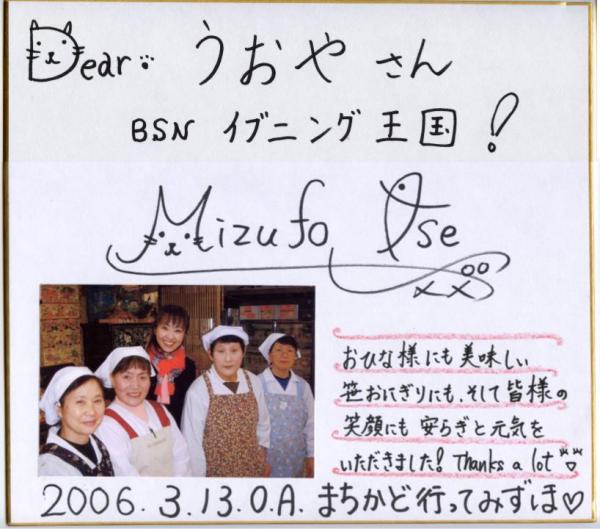 Dear うおや さん
BSN イブニング 王国!
Mizufo Ise
おひな様にも美味しい
笹おにぎりにも、そして皆様の
笑顔にも 安らぎと元気を
いただきました! Thanks a lot
2006.3.13.O.A. まちかど行ってみずほ♡